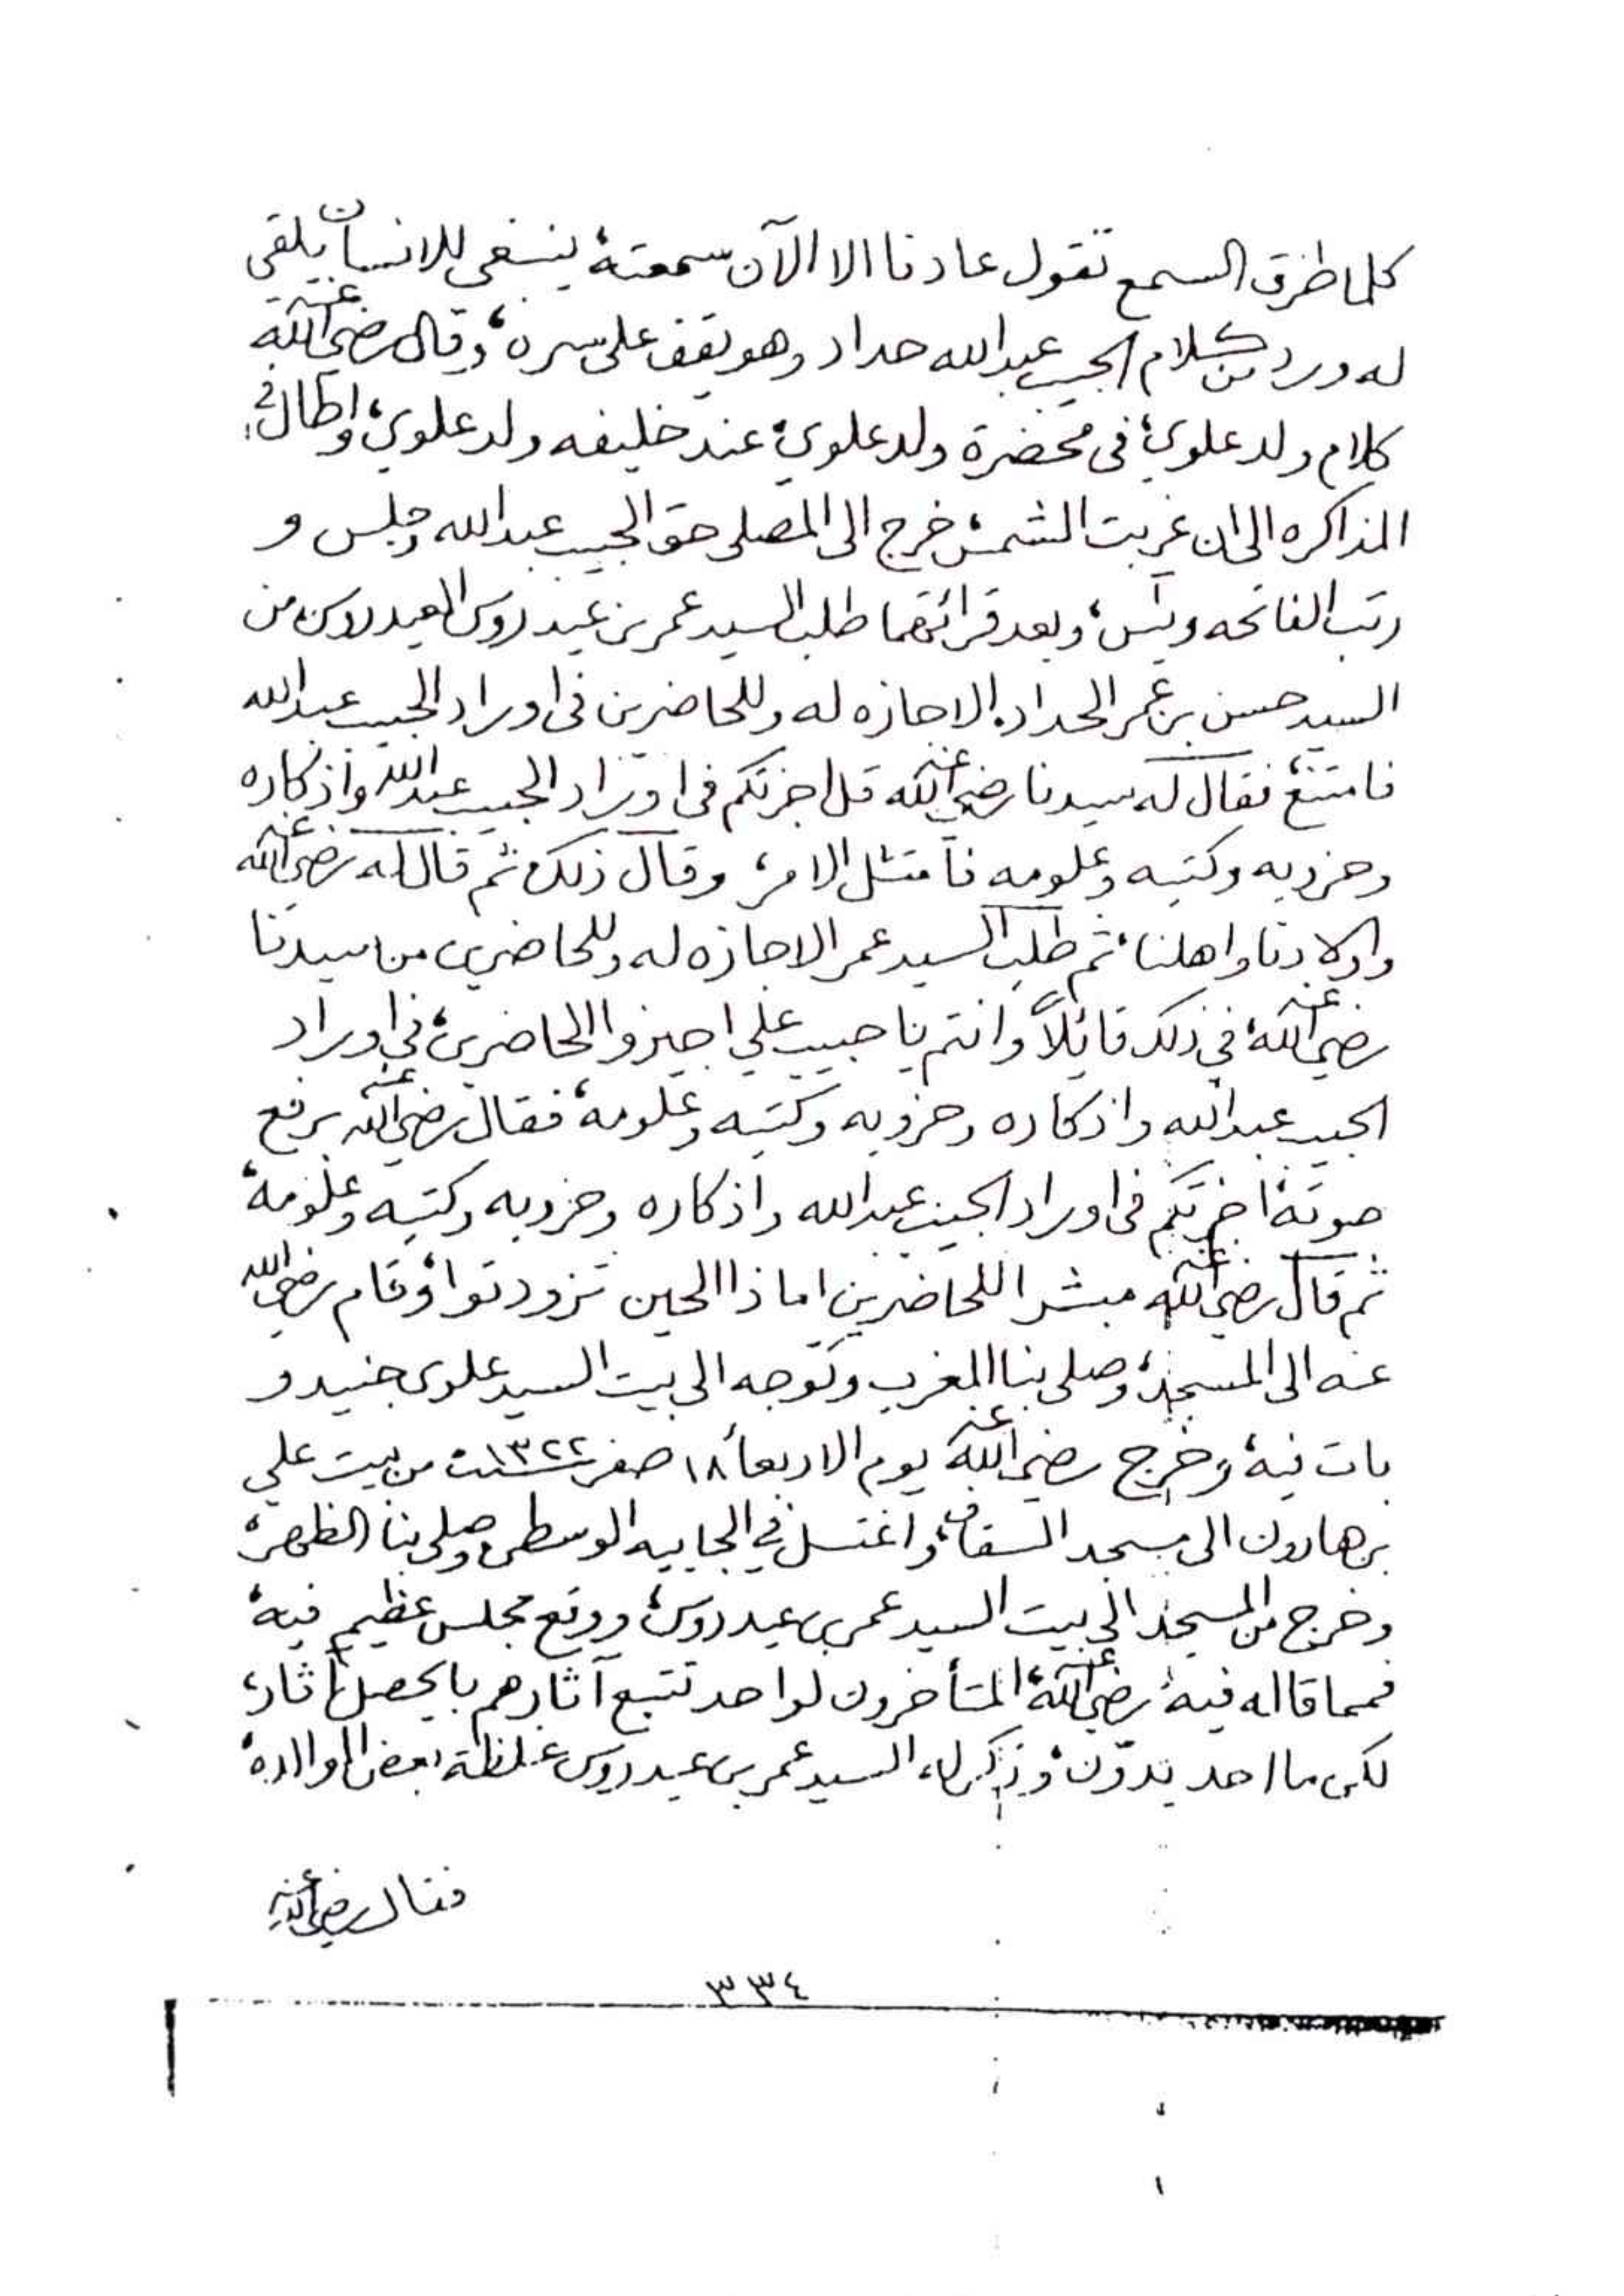 كلما طرق السمع تقول عادنا الا الآن سمعته، ينبغي للانسان يلقي
له ورد من كلام الحبيب عبدالله حداد وهو يقف على سره، وقال رضي الله عنه
كلام ولد علوي، في محضرة ولد علوي، عند خليفه ولد علوي، واطال في
المذاكره الى ان غربت الشمس، خرج الى المصلى حق الحبيب عبدالله وجلس و
رتب الفاتحه ويس، وبعد قرائتهما طلب السيد عمر بن عيدروس العيدروس من
السيد حسن بن عمر الحداد، الاجازه له وللحاضرين في اوراد الحبيب عبدالله
فامتنع، فقال له سيدنا رضي الله عنه قل اجزتكم في اوراد الحبيب عبدالله واذكاره
وحزوبه وكتبه وعلومه فامتثل الامر، وقال ذلك ثم قال له رضي الله عنه
واولادنا واهلنا، ثم طلب السيد عمر الاجازه له وللحاضرين من سيدنا
رضي الله عنه، في ذلك قائلاً وانتم يا حبيب علي اجيزوا الحاضرين، في اوراد
الحبيب عبدالله واذكاره وحزوبه وكتبه وعلومه، فقال رضي الله عنه برفع
صوته، اجزتكم في اوراد الحبيب عبدالله واذكاره وحزوبه وكتبه وعلومه،
ثم قال رضي الله عنه مبشرا للحاضرين اما ذا الحين تزودتوا، وقام رضي الله
عنه الى المسجد، وصلى بنا المغرب وتوجه الى بيت السيد علوي جنيد و
بات فيه، وخرج رضي الله عنه يوم الاربعاء ١٨ صفر سنة ١٣٢٢ من بيت علي
بن هارون الى مسجد السقاف، واغتسل في الجابيه الوسطى وصلى بنا الظهر،
وخرج من المسجد الى بيت السيد عمر بن عيدروس، ووقع مجلس عظيم فيه،
فمما قاله فيه، رضي الله عنه، المتأخرون لواحد تتبع آثارهم بايحصل آثار،
لكن ما احد يدوّن، وذكر له السيد عمر بن عيدروس غلظة بعض الوالاه،
فقال رضي الله عنه
٣٣٤